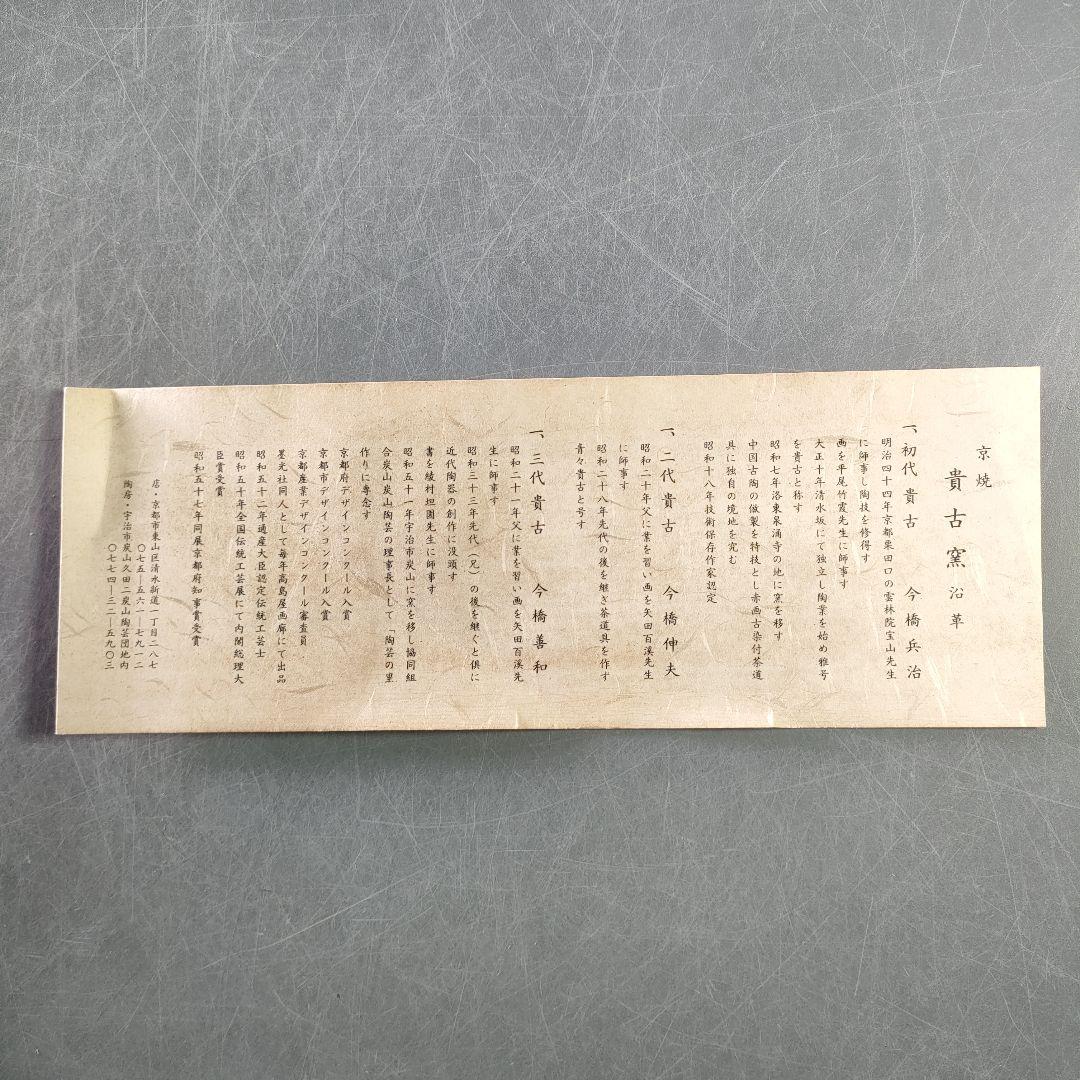 京焼
貴古窯 沿革
一、初代貴古 今橋兵治
明治四十四年京都粟田口の雲林院宝山先生
に師事し陶技を修得す
画を平尾竹霞先生に師事す
大正十年清水坂にて独立し陶業を始め雅号
を貴古と称す
昭和七年洛東泉涌寺の地に窯を移す
中国古陶の倣製を特技とし赤画古染付茶道
具に独自の境地を究む
昭和十八年技術保存作家認定
一、二代貴古 今橋伸夫
昭和二十年父に業を習い画を矢田百渓先生
に師事す
昭和二十八年先代の後を継ぎ茶道具を作す
青々貴古と号す
一、三代貴古 今橋善和
昭和二十一年父に業を習い画を矢田百渓先
生に師事す
昭和三十三年先代(兄)の後を継ぐと倶に
近代陶器の創作に没頭す
書を綾村坦園先生に師事す
昭和五十一年宇治市炭山に窯を移し協同組
合炭山陶芸の理事長として、陶芸の里
作りに専念す
京都府デザインコンクール入賞
京都市デザインコンクール入賞
京都産業デザインコンクール審査員
墨光社同人として毎年高島屋画廊にて出品
昭和五十二年通産大臣認定伝統工芸士
昭和五十年全国伝統工芸展にて内閣総理大
臣賞受賞
昭和五十七年同展京都府知事賞受賞
店・京都市東山区清水新道一丁目二八七
〇七五―五六一―七九一二
陶房・宇治市炭山久田二炭山陶芸団地内
〇七七四―三二―五九〇三